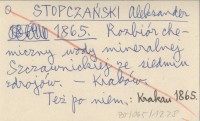 STOPCZAŃSKI Aleksander
1865. Rozbiór che-
miczny wody mineralnej
Szczawnickiej ze siedmiu
zdrojów. — Kraków.
Też po niem.: Krakau 1865.